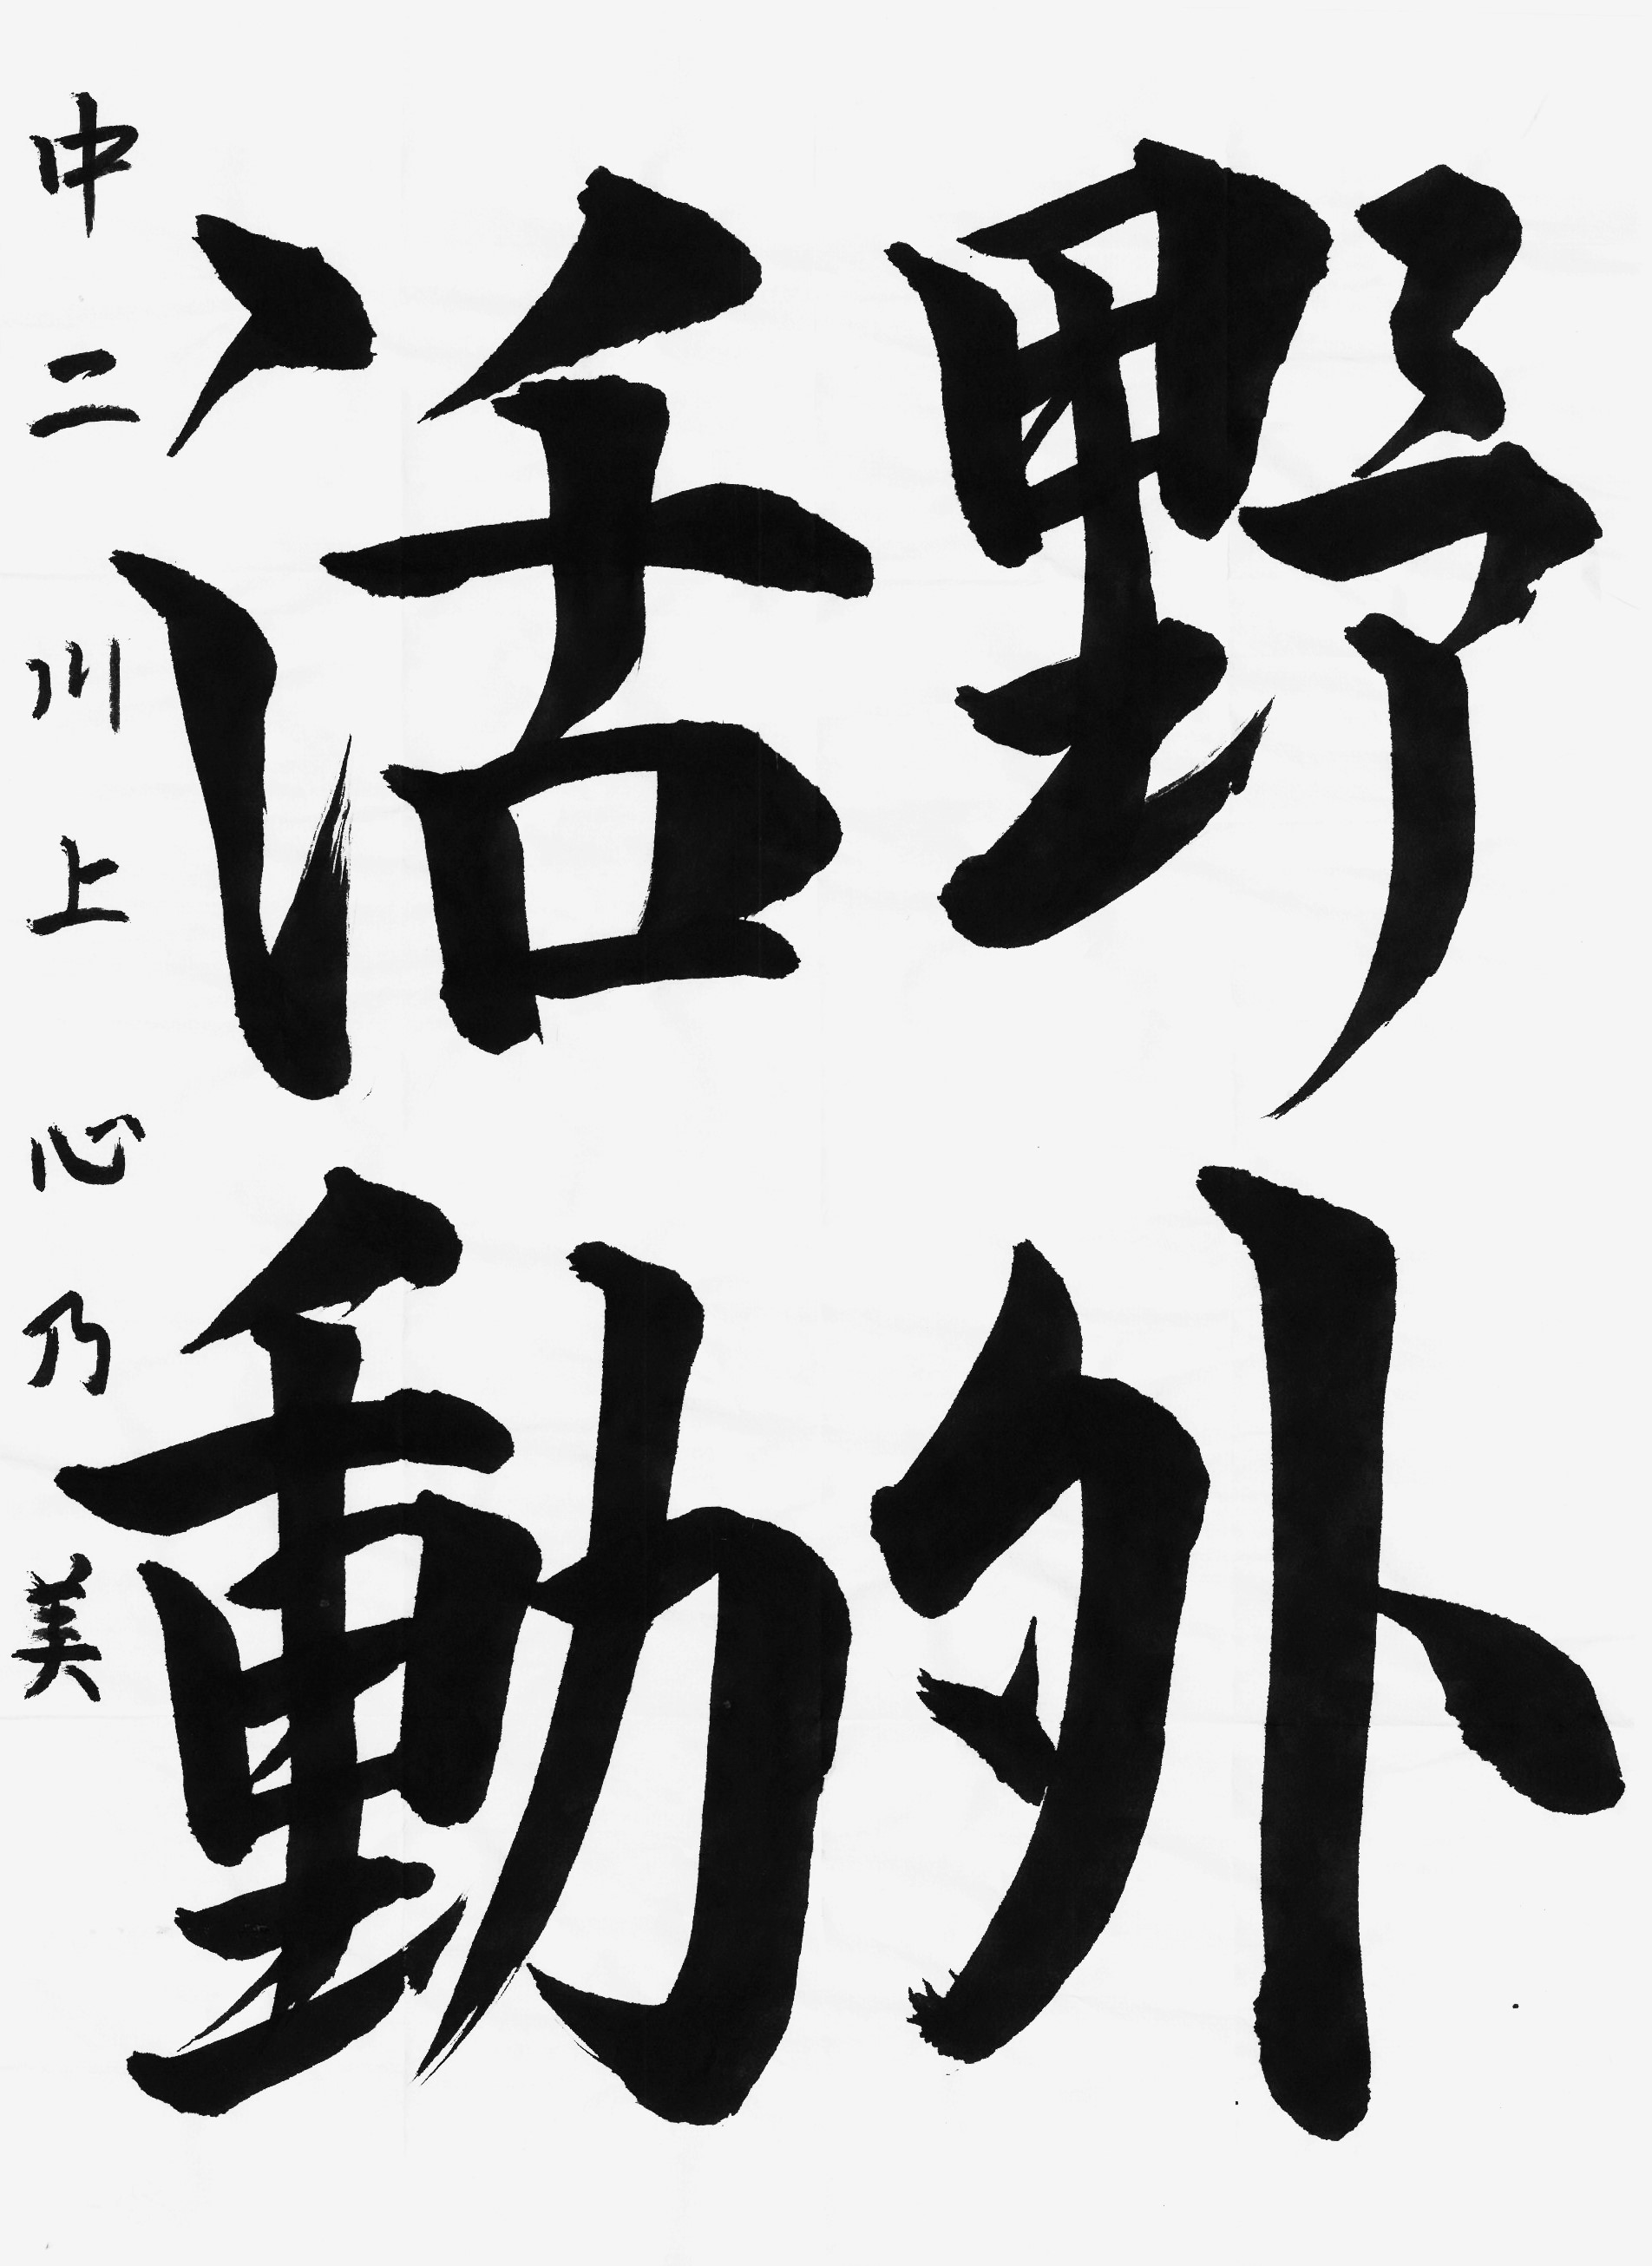 野外
活動
中二 川上心乃美